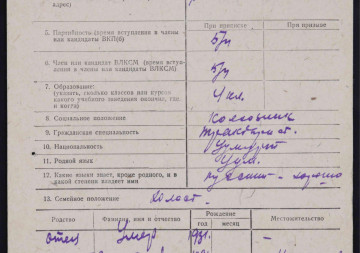 адрес)
При приписке При призыве
5. Партийность (время вступления в члены
или кандидаты ВКП(б)
Б/п
6. Член или кандидат ВЛКСМ (время вступ-
ления в члены или кандидаты ВЛКСМ)
Б/п
7. Образование:
(указать, сколько классов или курсов
какого учебного заведения окончил, где
и когда)
4 кл.
8. Социальное положение Колхозник
9. Гражданская специальность Тракторист.
10. Национальность Удмурт
11. Родной язык Удм.
12. Какие языки знает, кроме родного, и в
какой степени владеет ими
русский - хорошо
13. Семейное положение Холост
Родство Фамилия, имя и отчество Рождение Местожительство
год месяц
отец Умер 1931. –